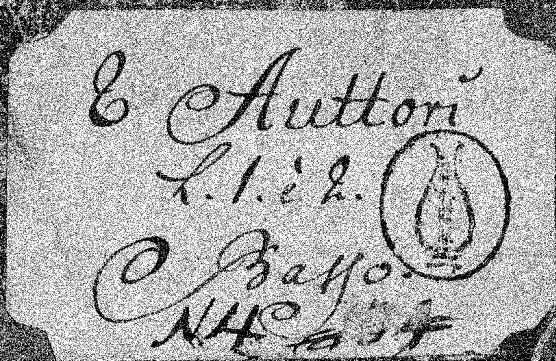 8 Auttori
L. 1. è 2.
Basso.
N4